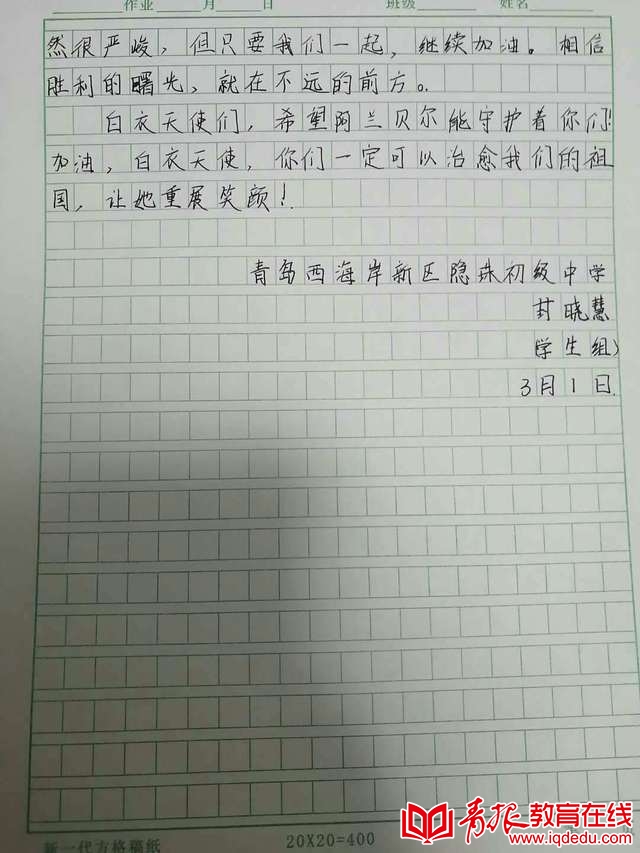 作业 月 日 班级 姓名
然很严峻，但只要我们一起，继续加油。相信
胜利的曙光，就在不远的前方。
白衣天使们，希望阿兰贝尔能守护着你们！
加油，白衣天使，你们一定可以治愈我们的祖
国，让她重展笑颜！
青岛西海岸新区隐珠初级中学
封晓慧
（学生组）
3月1日
新一代方格稿纸 20X20=400
青报教育在线
www.iqdedu.com